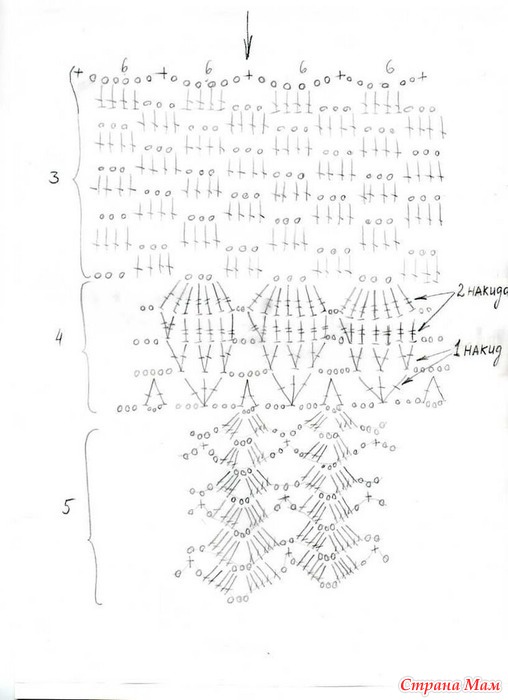 6 6 6 6
3
2 накида
4
1 накид
5
Страна Мам